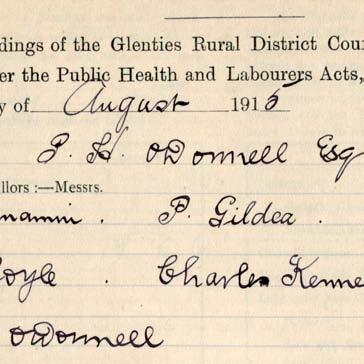 dings of the Glenties Rural District Cou
er the Public Health and Labourers Acts,
y of August 1915
P. H. O'Donnell Esq
llors :—Messrs.
namin . P. Gildea .
oyle . Charles Kenne
O'Donnell